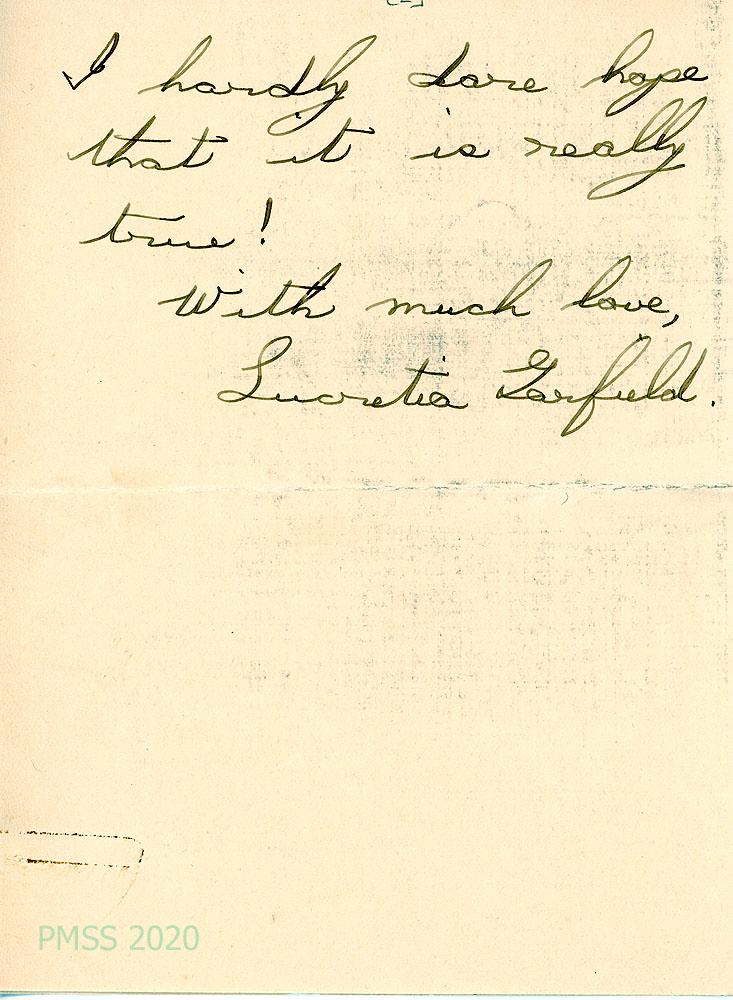 I hardly dare hope
that it is really
true!
With much love,
Lucretia Garfield.
PMSS 2020